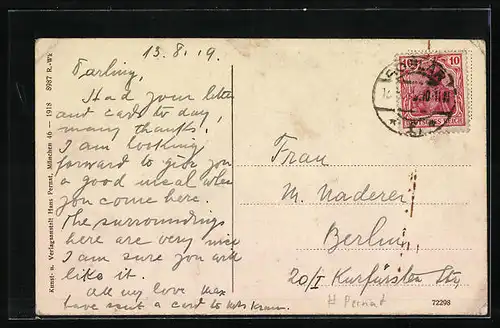 13. 8. 19.
Darling,
Had your letter
and cards to day,
many thanks!
I am looking
forward to give you
a good meal when
you come here.
The surroundings
here are very nice
I am sure you will
like it.
All my love Max
have sent a card to
Frau
M. Naderer
Berlin
20/I Kurfürsten Str
H Pernat
72298
10
DEUTSCHES REICH
Kunst- u. Verlagsanstalt Hans Pernat, München 46 — 1918 8987 R.-Wk